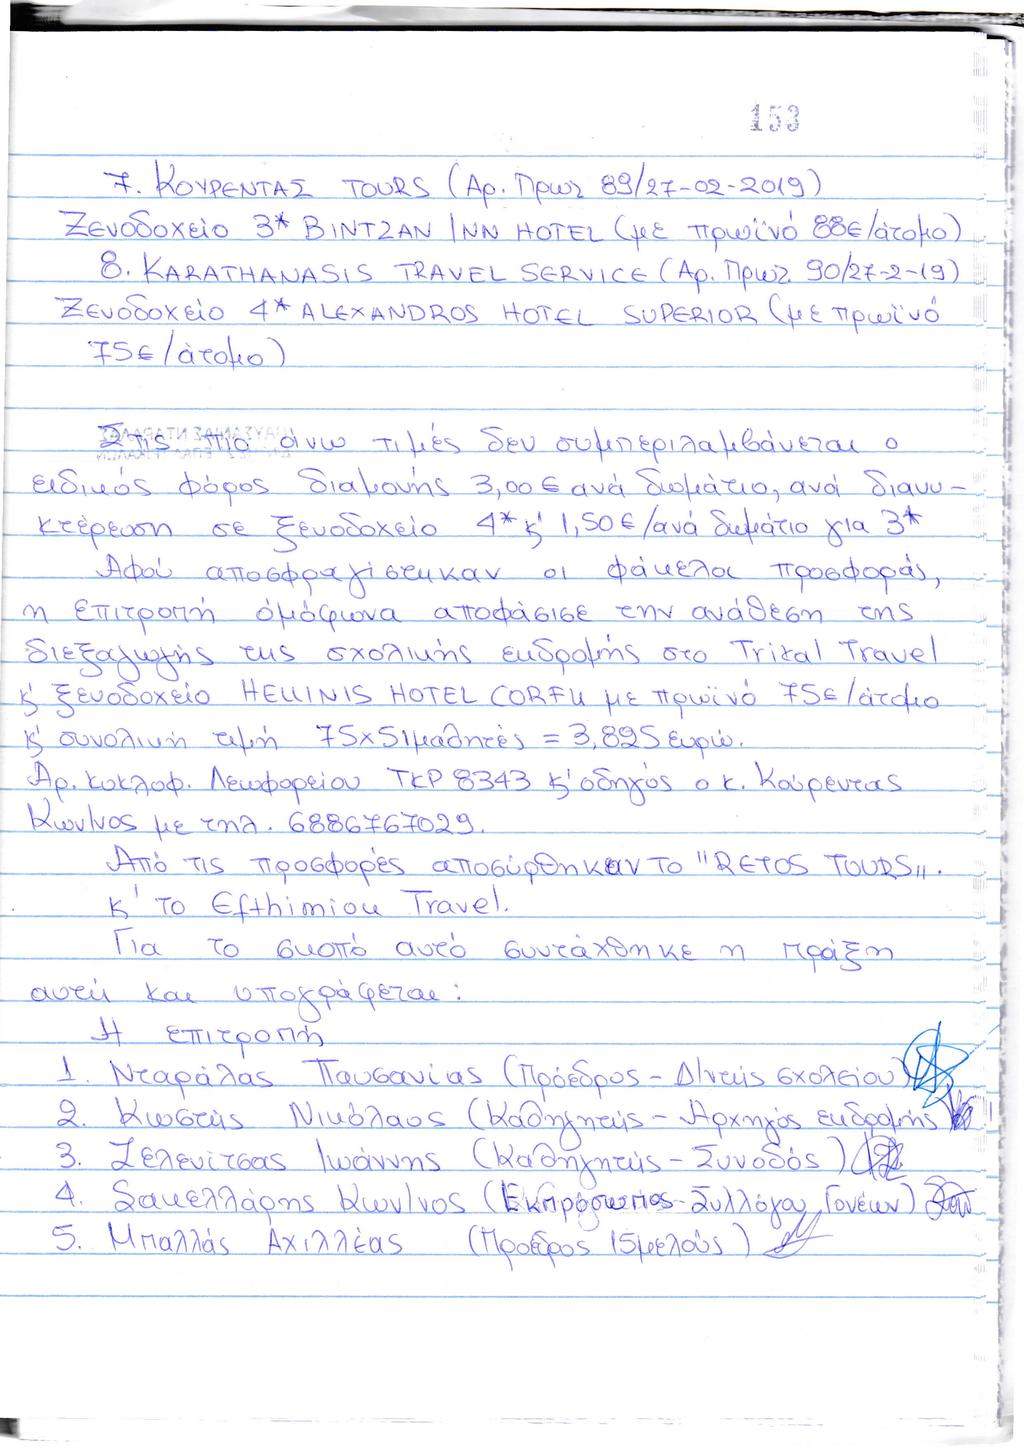 153
7. ΚΟΥΡΕΝΤΑΣ TOURS (Αρ. Πρωτ 89/27-02-2019)
Ξενοδοχείο 3* ΒΙΝΤΖΑΝ INN HOTEL (με πρωϊνό 88€/άτομο)
8. KARATHANASIS TRAVEL SERVICE (Αρ. Πρωτ. 90/27-2-19)
Ξενοδοχείο 4* ALEXANDROS HOTEL SUPERIOR (με πρωϊνό
75€/άτομο)
Στις πιο άνω τιμές δεν συμπεριλαμβάνεται ο
ειδικός φόρος διαμονής 3,00€ ανά δωμάτιο, ανά διανυ-
κτέρευση σε ξενοδοχείο 4* κ' 1,50€/ανά δωμάτιο για 3*
Αφού αποσφραγίστηκαν οι φάκελοι προσφοράς,
η επιτροπή ομόφωνα αποφάσισε την ανάθεση της
διεξαγωγής της σχολικής εκδρομής στο Trikal Travel
κ' ξενοδοχείο HELLINIS HOTEL CORFU με πρωϊνό 75€/άτομο
κ' συνολική τιμή 75x51μαθητές = 3,825 ευρώ.
Αρ. κυκλοφ. Λεωφορείου ΤΚΡ 8343 κ' οδηγός ο κ. Κούρεντας
Κων/νος με τηλ. 6886767029.
Από τις προσφορές αποσύρθηκαν το "RETOS TOURS".
κ' το Efthimiou Travel.
Για το σκοπό αυτό συντάχθηκε η πράξη
αυτή και υπογράφεται:
Η επιτροπή
1. Νταράλας Παυσανίας (Πρόεδρος - Δ/ντής σχολείου)
2. Κωστής Νικόλαος (Καθηγητής - Αρχηγός εκδρομής)
3. Ζελενίτσας Ιωάννης (Καθηγητής - Συνοδός)
4. Σακελλάρης Κων/νος (Εκπρόσωπος - Συλλόγου Γονέων)
5. Μπαλλάς Αχιλλέας (Πρόεδρος 15μελούς)